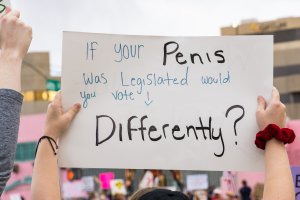 If your Penis
was Legislated would
you vote ↓
Differently?